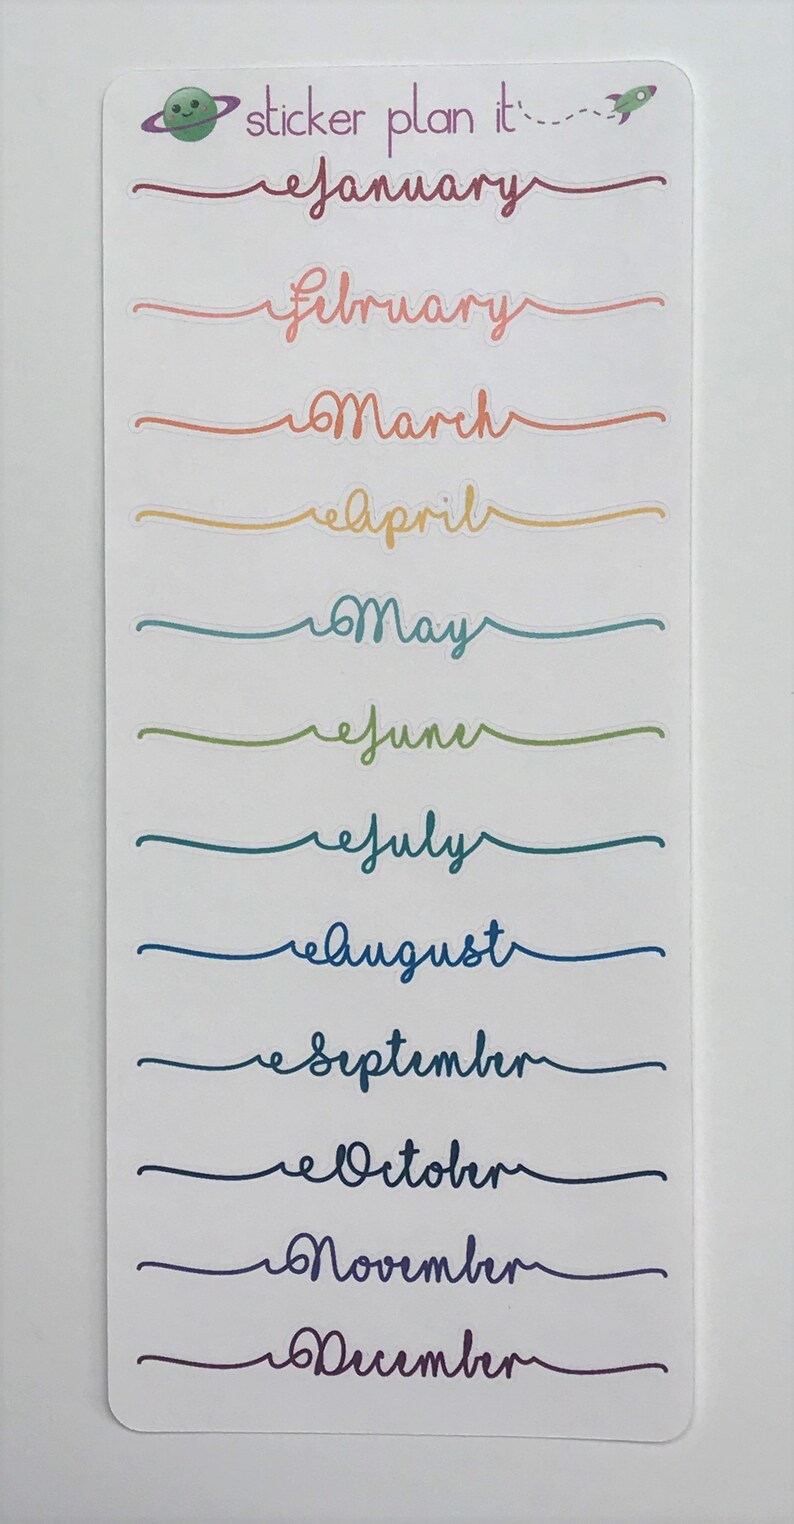 sticker plan it
January
February
March
April
May
June
July
August
September
October
November
December